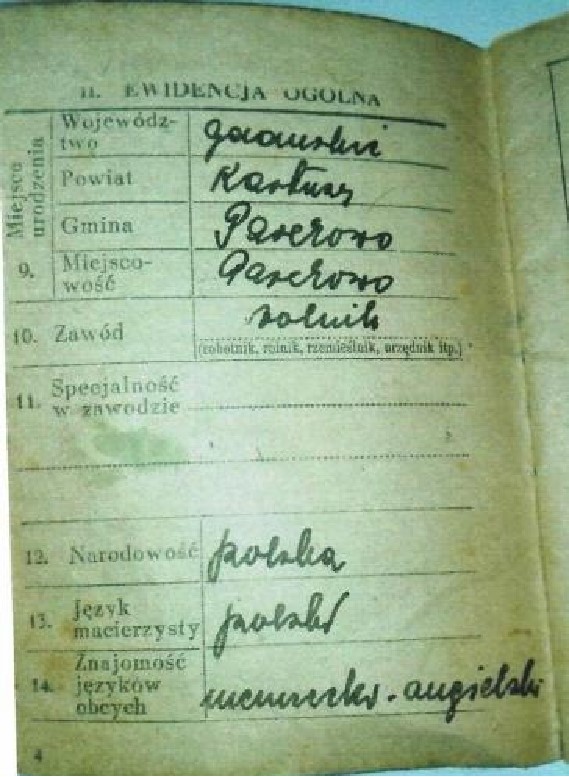 II. EWIDENCJA OGÓLNA
Miejsce urodzenia
Wojewódz-
two gdański
Powiat Kartuzy
Gmina
9. Miejsco-
wość
10. Zawód rolnik
(robotnik, rolnik, rzemieślnik, urzędnik itp.)
11. Specjalność
w zawodzie
12. Narodowość polska
13. Język
macierzysty polski
14. Znajomość
języków
obcych niemiecki - angielski
4